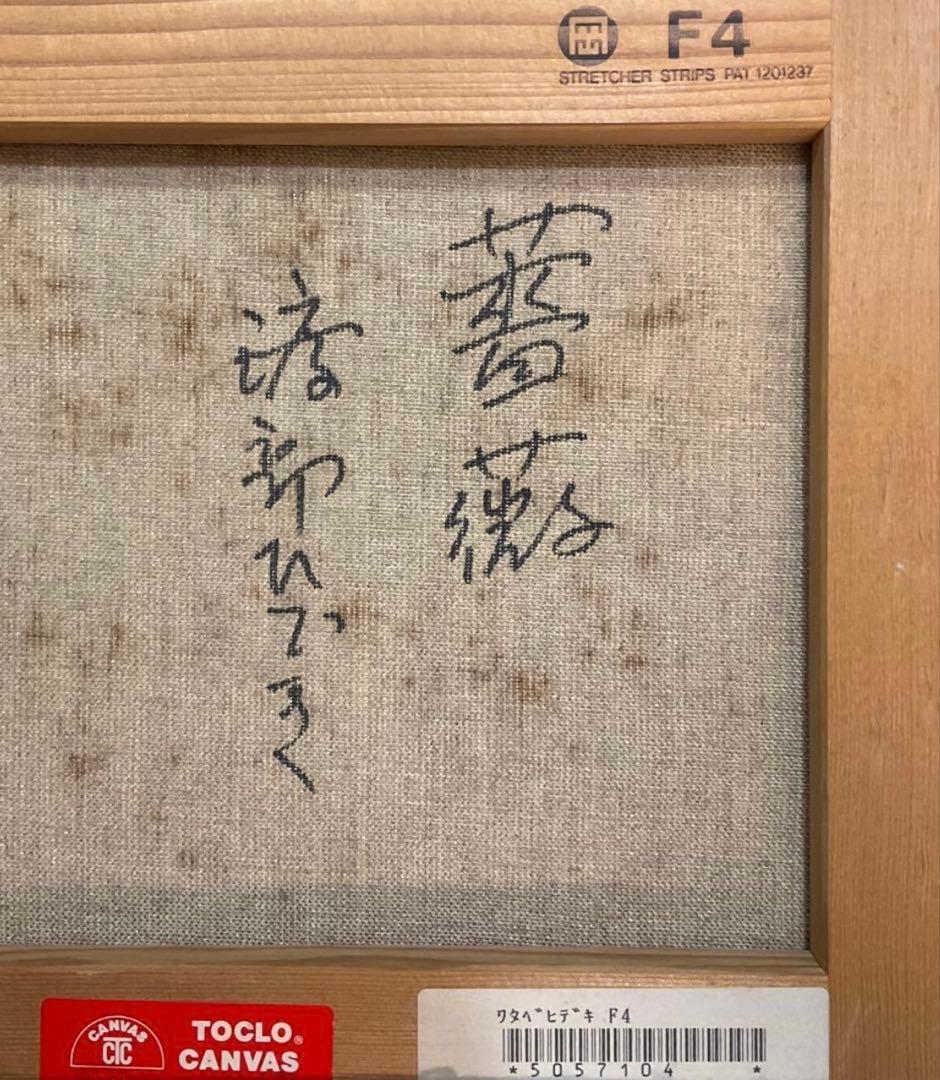 F4
STRETCHER STRIPS PAT 1201237
薔薇
渡部ひでき
CANVAS
CTC
TOCLO®
CANVAS
ワタベヒデキ F4
*5057104*